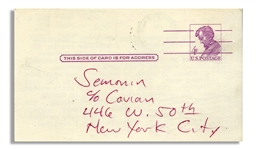 4¢
U.S. POSTAGE
THIS SIDE OF CARD IS FOR ADDRESS
Semonin
c/o Cavian
446 W. 50th
New York City